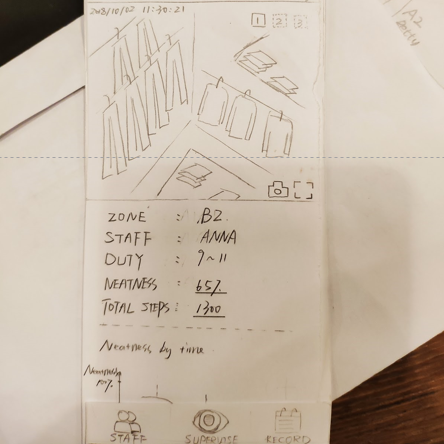 2018/10/02 11:30:21
1 2 3
A2
ZONE : B2
STAFF : ANNA
DUTY : 9~11
NEATNESS : 65%
TOTAL STEPS : 1300
Neatness by time
Neatness
STAFF SUPERVISE RECORD